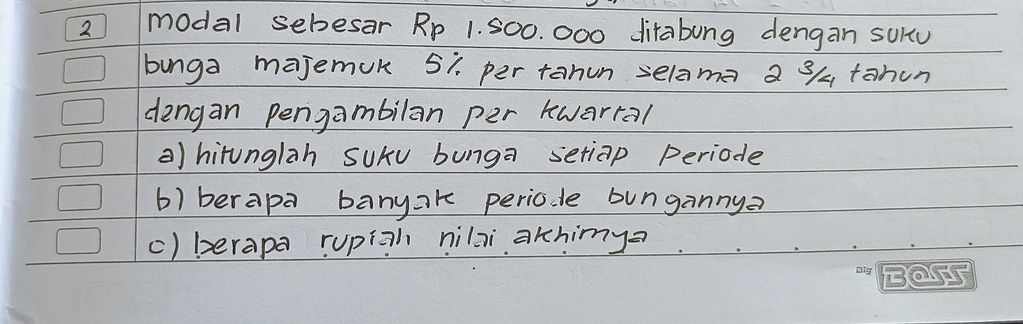 2 modal sebesar Rp 1.500.000 ditabung dengan suku
bunga majemuk 5% per tahun selama 2 3/4 tahun
dengan pengambilan per kwartal
a) hitunglah suku bunga setiap Periode
b) berapa banyak periode bungannya
c) berapa rupiah nilai akhirnya
Big BOSS